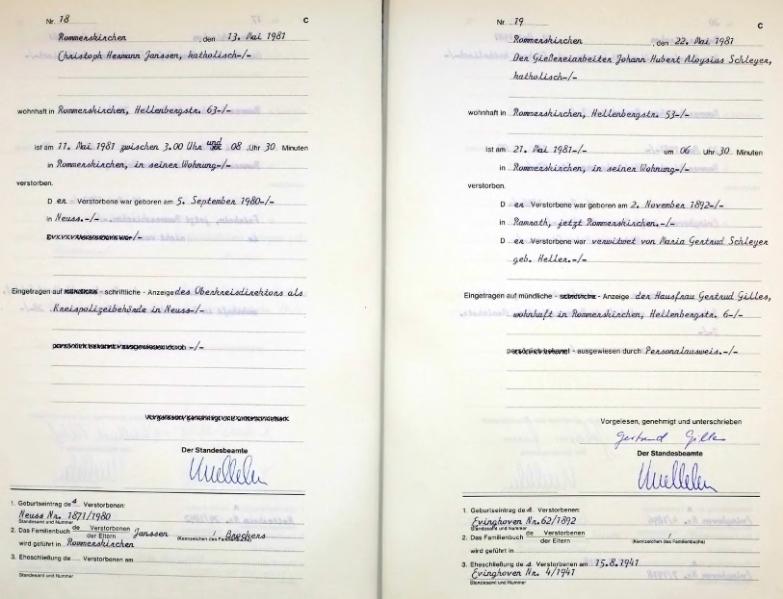 Nr. 18 C
Rommerskirchen , den 13. Mai 1981
Christoph Hermann Janssen, katholisch-/-
wohnhaft in Rommerskirchen, Hellenbergstr. 63-/-
ist am 11. Mai 1981 zwischen 3.00 Uhr und 08 Uhr 30 Minuten
in Rommerskirchen, in seiner Wohnung-/-
verstorben.
D er Verstorbene war geboren am 5. September 1980-/-
in Neuss.-/-
Eingetragen auf - schriftliche - Anzeige des Oberkreisdirektors als
Kreispolizeibehörde in Neuss-/-
-/-
Der Standesbeamte
1. Geburtseintrag de Verstorbenen:
Neuss Nr. 1871/1980
Standesamt und Nummer
2. Das Familienbuch de Verstorbenen der Eltern Janssen /
(Kennzeichen des Familienbuchs)
wird geführt in Rommerskirchen
3. Eheschließung de Verstorbenen am
Standesamt und Nummer
Nr. 19 C
Rommerskirchen , den 22. Mai 1981
Der Gießereiarbeiter Johann Hubert Aloysius Schleyer,
katholisch-/-
wohnhaft in Rommerskirchen, Hellenbergstr. 53-/-
ist am 21. Mai 1981-/- um 06 Uhr 30 Minuten
in Rommerskirchen, in seiner Wohnung-/-
verstorben.
D er Verstorbene war geboren am 2. November 1892-/-
in Ramrath, jetzt Rommerskirchen.-/-
D er Verstorbene war verwitwet von Maria Gertrud Schleyer
geb. Heller.-/-
Eingetragen auf mündliche - schriftliche - Anzeige der Hausfrau Gertrud Gilles,
wohnhaft in Rommerskirchen, Hellenbergstr. 6-/-
persönlich bekannt - ausgewiesen durch Personalausweis.-/-
Vorgelesen, genehmigt und unterschrieben
Gertrud Gilles
Der Standesbeamte
1. Geburtseintrag de Verstorbenen:
Evinghoven Nr. 62/1892
Standesamt und Nummer
2. Das Familienbuch de Verstorbenen der Eltern /
(Kennzeichen des Familienbuchs)
wird geführt in
3. Eheschließung de Verstorbenen am 15.8.1941
Evinghoven Nr. 4/1941
Standesamt und Nummer